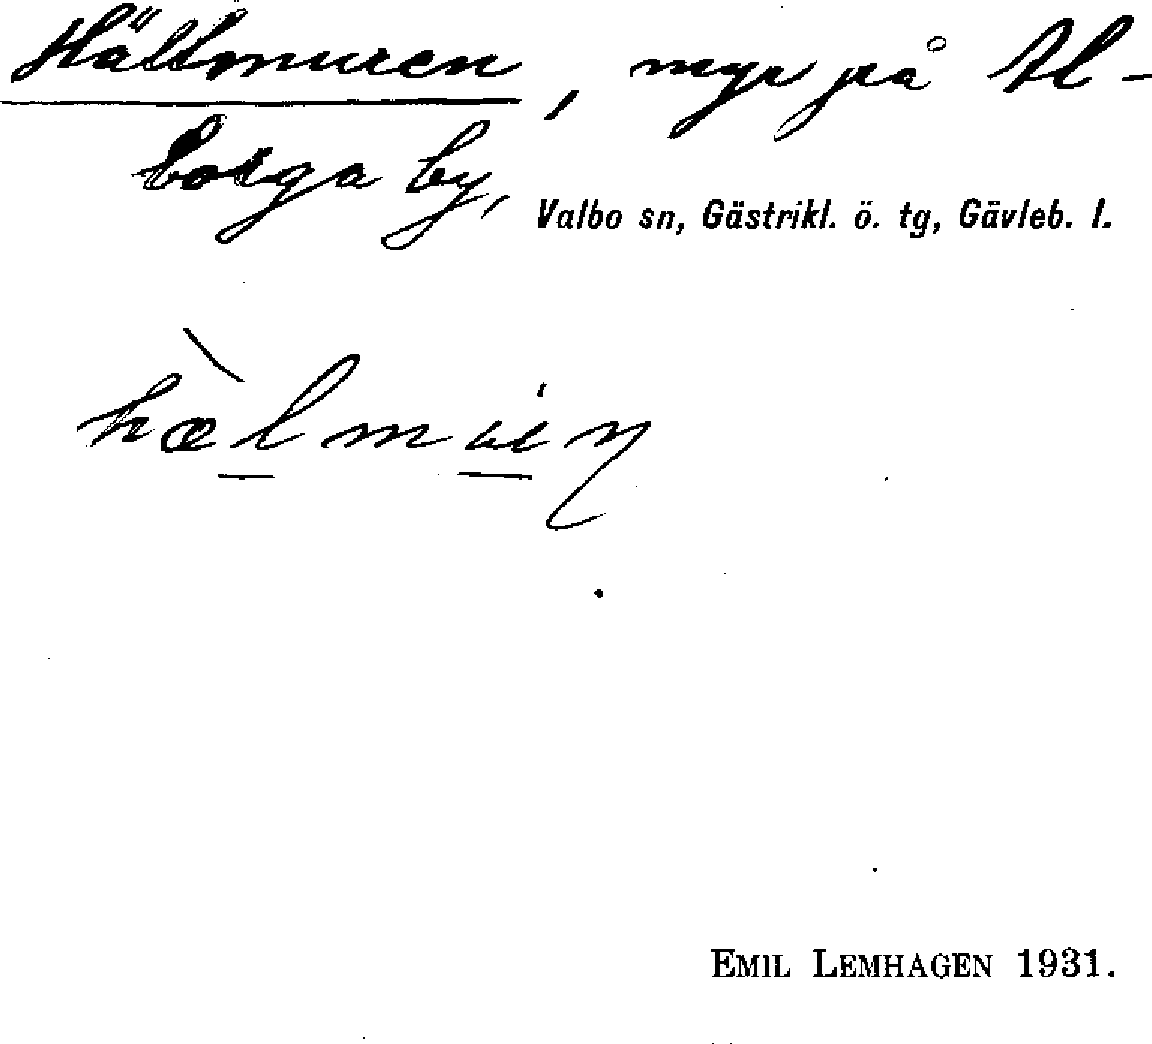 Hällmuren, myr på Al-
borga by,
Valbo sn, Gästrikl. ö. tg, Gävleb. l.
EMIL LEMHAGEN 1931.